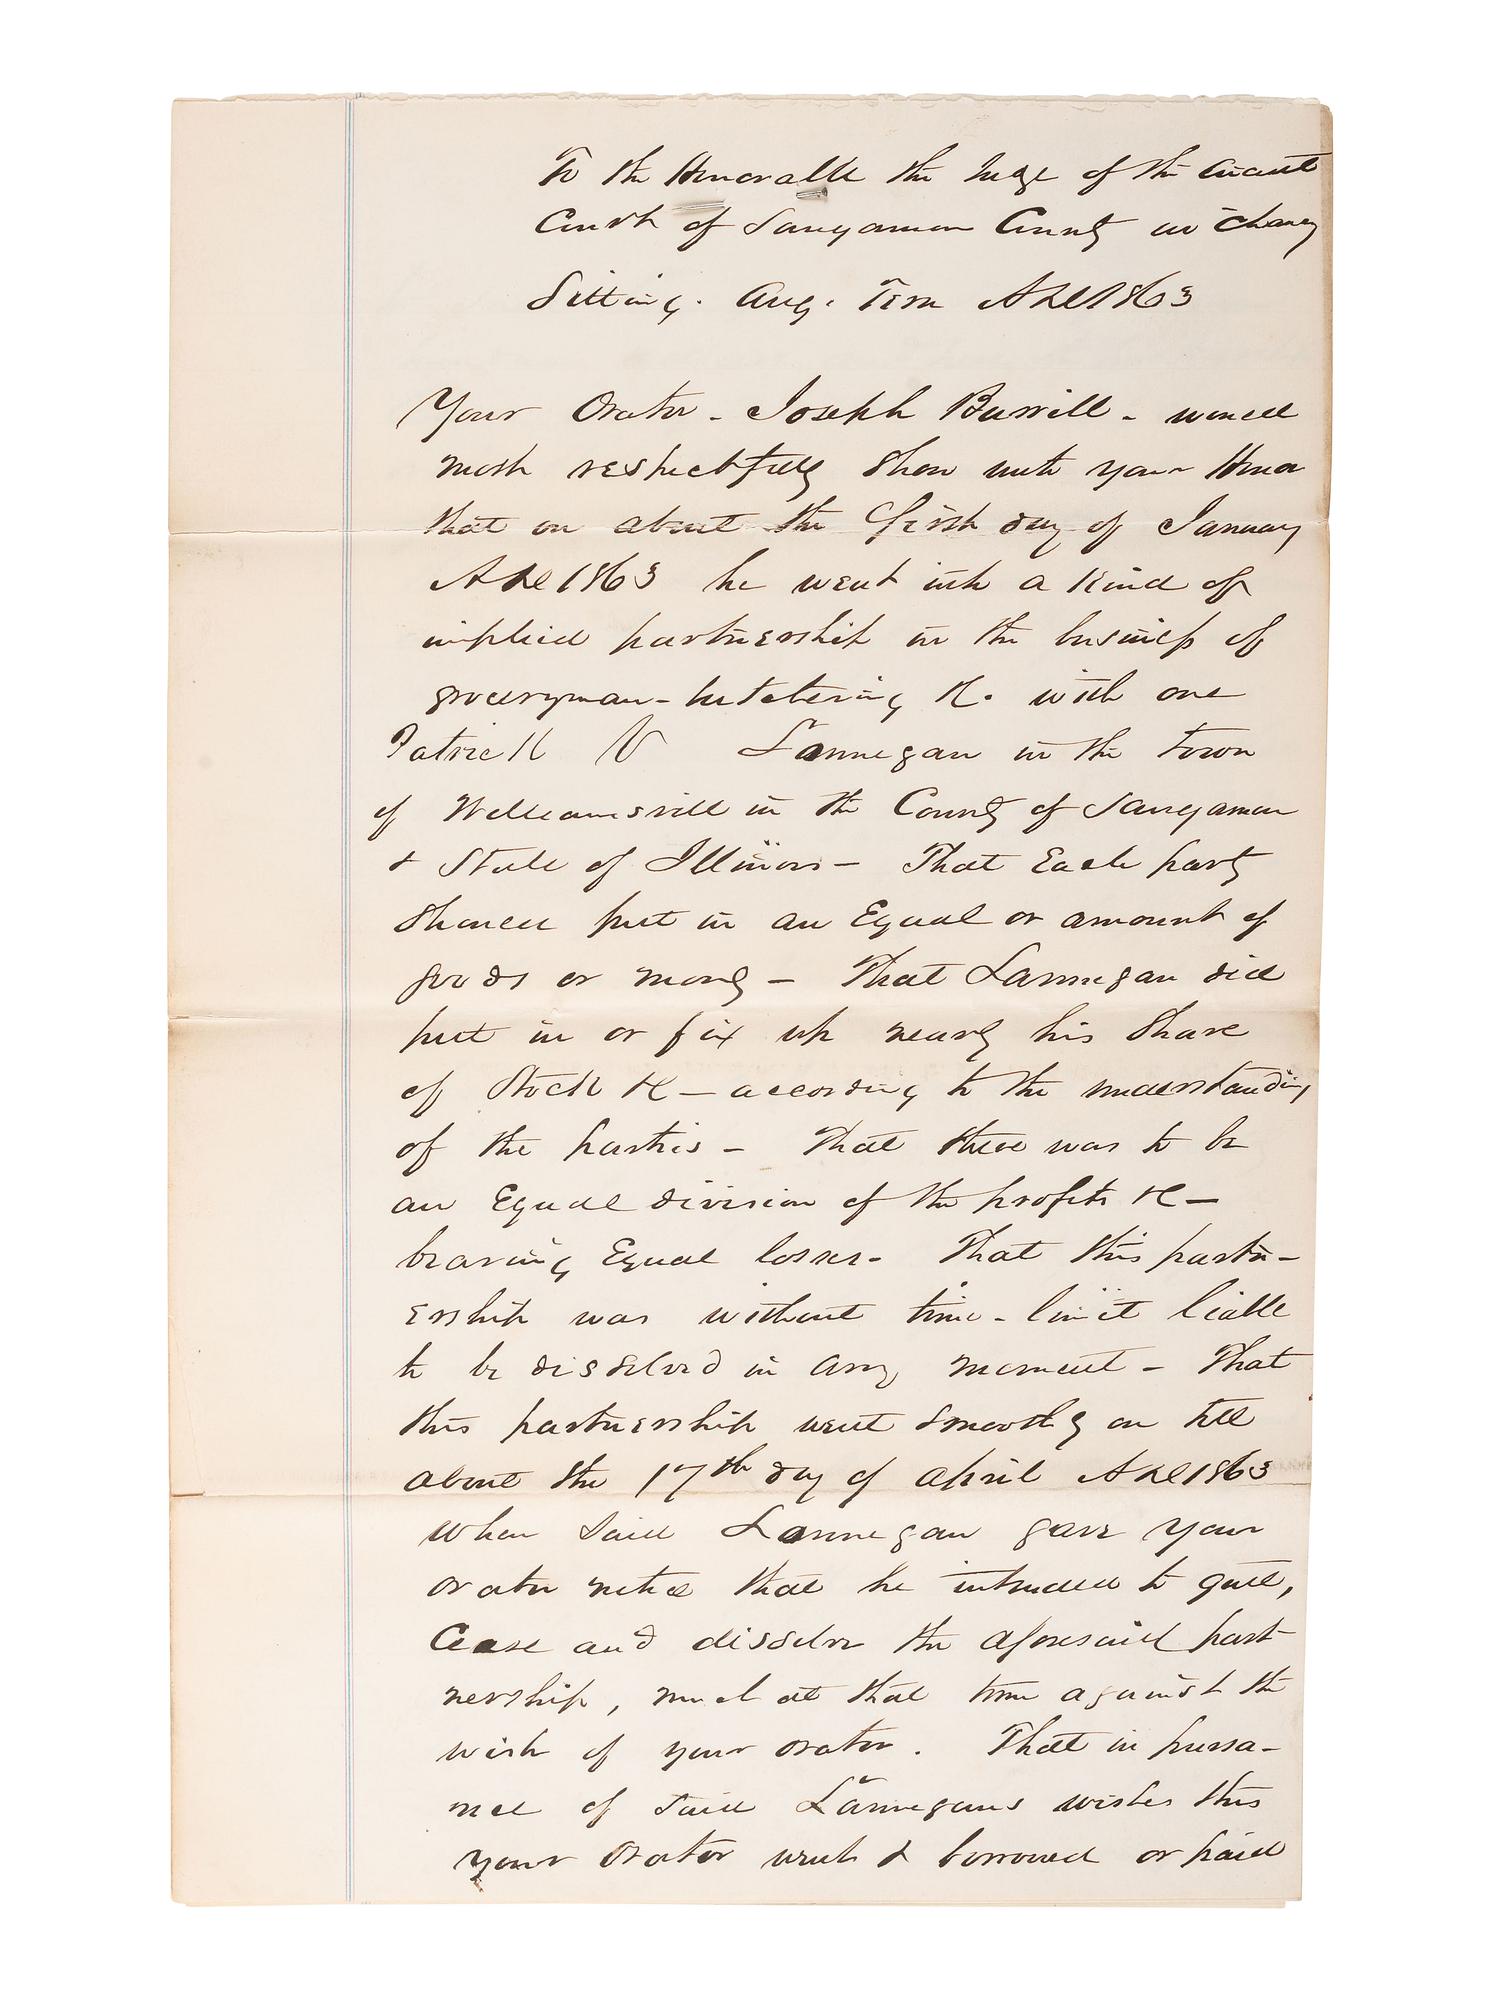 To the Honorable the Judge of the Circuit
Court of Sangamon County in Chancy
Sitting. Aug. Term A.D. 1863
Your Orator - Joseph Burrill - would
most respectfully Show unto your Honor
that on about the first day of January
A.D. 1863 he went into a kind of
implied partnership in the business of
groceryman - butchering &c. with one
Patrick V Lannegan in the town
of Williamsvill in the County of Sangamon
& State of Illinois - That Each party
Should put in an Equal or amount of
goods or money - That Lannegan did
put in or fix up nearly his Share
of Stock &c - according to the understanding
of the parties - That there was to be
an Equal division of the profits &c -
bearing Equal losses - That this partn-
ership was without time - limit liable
to be dissolved in any moment - That
this partnership went Smoothly on till
about the 17th day of April A.D. 1863
when Said Lannegan gave your
orator notice that he intended to quit,
Cease and dissolve the aforesaid part
nership, much at that time against the
wish of your orator. That in pursa-
nce of Said Lannegans wishes this
your Orator went & borrowed or paid